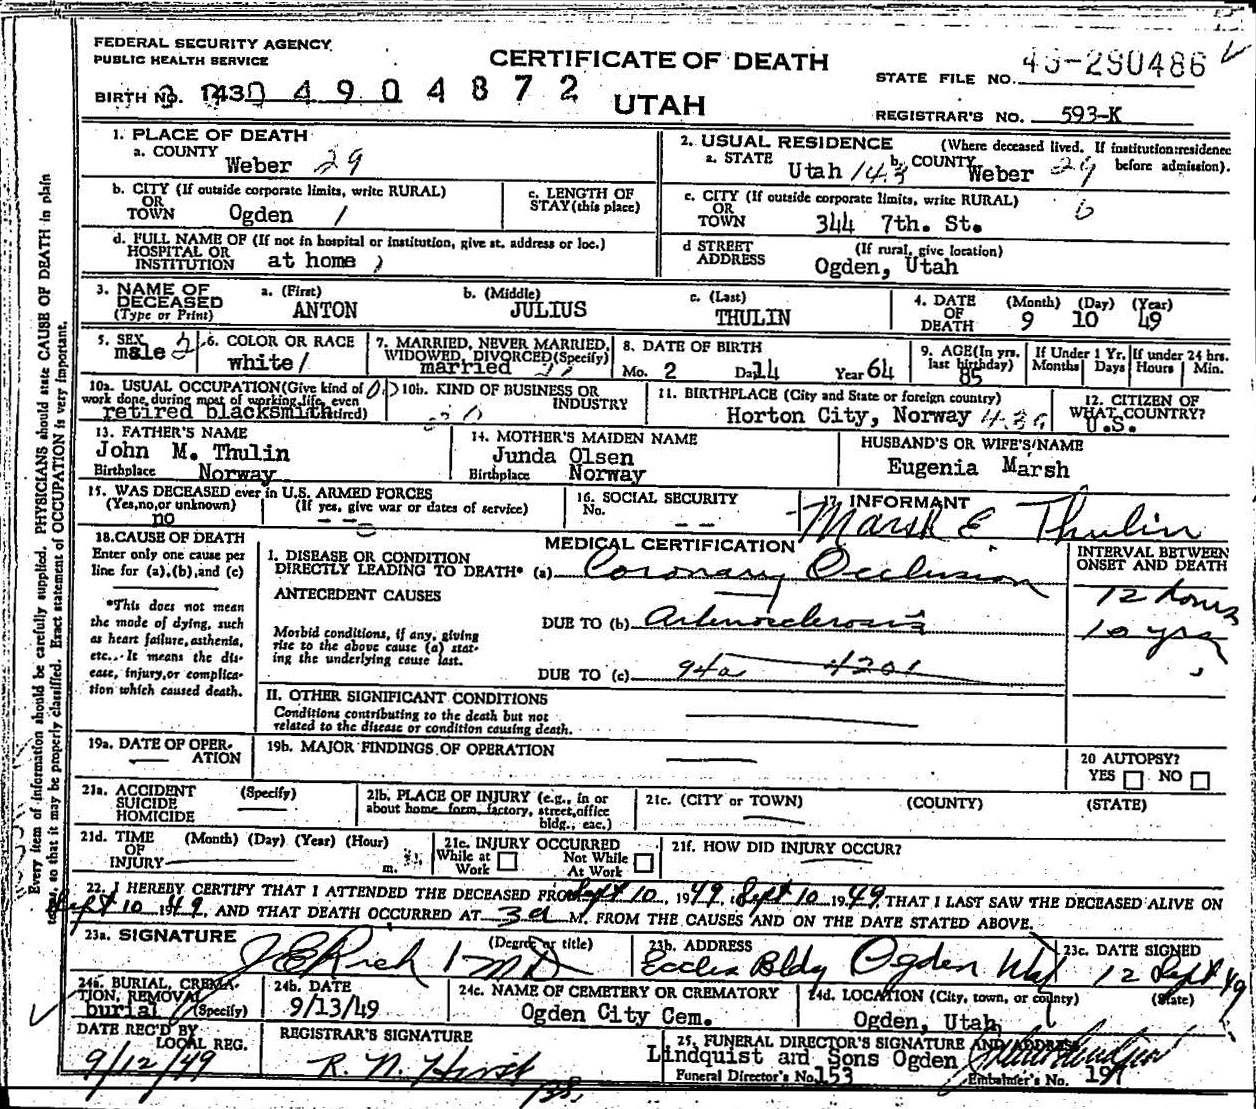 FEDERAL SECURITY AGENCY
PUBLIC HEALTH SERVICE
CERTIFICATE OF DEATH
STATE FILE NO. 49-290486
BIRTH NO. 143 0 4 9 0 4 8 7 2
UTAH
REGISTRAR'S NO. 593-K
1. PLACE OF DEATH
a. COUNTY
Weber 29
2. USUAL RESIDENCE (Where deceased lived. If institution: residence before admission).
a. STATE Utah 143 b. COUNTY Weber 29
b. CITY (If outside corporate limits, write RURAL)
OR
TOWN Ogden 1
c. LENGTH OF
STAY (this place)
c. CITY (If outside corporate limits, write RURAL)
OR
TOWN 344 7th. St.
d. FULL NAME OF (If not in hospital or institution, give st. address or loc.)
HOSPITAL OR
INSTITUTION at home
d STREET (If rural, give location)
ADDRESS Ogden, Utah
3. NAME OF
DECEASED
(Type or Print)
a. (First) b. (Middle) c. (Last)
ANTON JULIUS THULIN
4. DATE OF DEATH (Month) (Day) (Year)
9 10 49
5. SEX
male
6. COLOR OR RACE
white
7. MARRIED, NEVER MARRIED,
WIDOWED, DIVORCED (Specify)
married
8. DATE OF BIRTH
Mo. 2 Da. 14 Year 64
9. AGE (In yrs. last birthday)
85
If Under 1 Yr. Months Days
If under 24 hrs. Hours Min.
10a. USUAL OCCUPATION (Give kind of
work done during most of working life, even
retired blacksmith
10b. KIND OF BUSINESS OR
INDUSTRY
11. BIRTHPLACE (City and State or foreign country)
Horton City, Norway
12. CITIZEN OF
WHAT COUNTRY?
U.S.
13. FATHER'S NAME
John M. Thulin
Birthplace Norway
14. MOTHER'S MAIDEN NAME
Junda Olsen
Birthplace Norway
HUSBAND'S OR WIFE'S NAME
Eugenia Marsh
15. WAS DECEASED ever in U.S. ARMED FORCES
(Yes, no, or unknown) (If yes, give war or dates of service)
no
16. SOCIAL SECURITY
No.
17. INFORMANT
Marsh E Thulin
18. CAUSE OF DEATH
Enter only one cause per
line for (a), (b), and (c)
*This does not mean
the mode of dying, such
as heart failure, asthenia,
etc. It means the dis-
ease, injury, or complica-
tion which caused death.
MEDICAL CERTIFICATION
INTERVAL BETWEEN
ONSET AND DEATH
I. DISEASE OR CONDITION
DIRECTLY LEADING TO DEATH* (a) Coronary Occlusion
12 hours
ANTECEDENT CAUSES
DUE TO (b) Arteriosclerosis
10 yrs
Morbid conditions, if any, giving
rise to the above cause (a) stat-
ing the underlying cause last.
DUE TO (c) 94a 4201
II. OTHER SIGNIFICANT CONDITIONS
Conditions contributing to the death but not
related to the disease or condition causing death.
19a. DATE OF OPER-
ATION
19b. MAJOR FINDINGS OF OPERATION
20 AUTOPSY?
YES NO
21a. ACCIDENT (Specify)
SUICIDE
HOMICIDE
21b. PLACE OF INJURY (e.g., in or
about home, farm, factory, street, office
bldg., eac.)
21c. (CITY or TOWN) (COUNTY) (STATE)
21d. TIME (Month) (Day) (Year) (Hour)
OF
INJURY m.
21e. INJURY OCCURRED
While at Work Not While At Work
21f. HOW DID INJURY OCCUR?
22. I HEREBY CERTIFY THAT I ATTENDED THE DECEASED FROM Sept 10, 1949, Sept 10 1949 THAT I LAST SAW THE DECEASED ALIVE ON
Sept 10 1949, AND THAT DEATH OCCURRED AT 3 a M. FROM THE CAUSES AND ON THE DATE STATED ABOVE.
23a. SIGNATURE (Degree or title)
J E Rich MD
23b. ADDRESS
Eccles Bldg Ogden Utah
23c. DATE SIGNED
12 Sept 49
24a. BURIAL, CREMA-
TION, REMOVAL
burial (Specify)
24b. DATE
9/13/49
24c. NAME OF CEMETERY OR CREMATORY
Ogden City Cem.
24d. LOCATION (City, town, or county) (State)
Ogden, Utah
DATE REC'D BY
LOCAL REG.
9/12/49
REGISTRAR'S SIGNATURE
R. N. Hirst
25. FUNERAL DIRECTOR'S SIGNATURE AND ADDRESS
Lindquist and Sons Ogden
Funeral Director's No. 153 Embalmer's No. 197
Every item of information should be carefully supplied. PHYSICIANS should state CAUSE OF DEATH in plain
terms, so that it may be properly classified. Exact statement of OCCUPATION is very important.